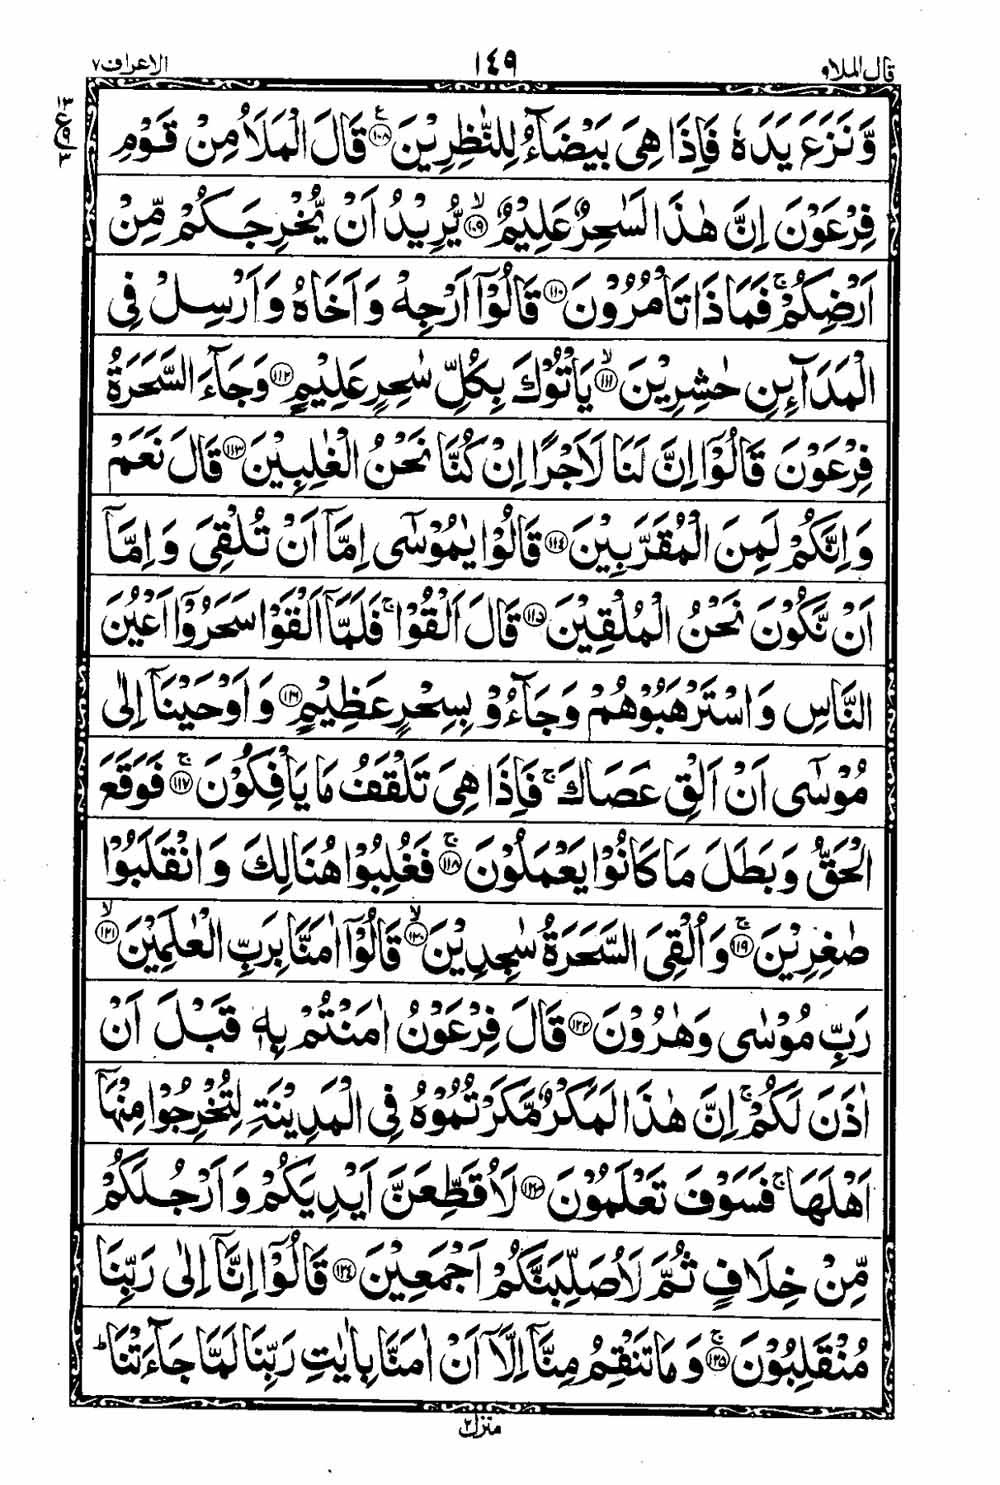 قال الملاو ١٤٩ الاعراف٧
وَّنَزَعَ يَدَهٗ فَاِذَا هِىَ بَيْضَآءُ لِلنّٰظِرِيْنَ ۝١٠٨ قَالَ الْمَلَاُ مِنْ قَوْمِ
فِرْعَوْنَ اِنَّ هٰذَا لَسٰحِرٌ عَلِيْمٌ ۝١٠٩ۙ يُّرِيْدُ اَنْ يُّخْرِجَكُمْ مِّنْ
اَرْضِكُمْ ۚ فَمَاذَا تَاْمُرُوْنَ ۝١١٠ قَالُوْٓا اَرْجِهْ وَاَخَاهُ وَاَرْسِلْ فِى
الْمَدَآئِنِ حٰشِرِيْنَ ۝١١١ۙ يَاْتُوْكَ بِكُلِّ سٰحِرٍ عَلِيْمٍ ۝١١٢ وَجَآءَ السَّحَرَةُ
فِرْعَوْنَ قَالُوْٓا اِنَّ لَنَا لَاَجْرًا اِنْ كُنَّا نَحْنُ الْغٰلِبِيْنَ ۝١١٣ قَالَ نَعَمْ
وَاِنَّكُمْ لَمِنَ الْمُقَرَّبِيْنَ ۝١١٤ قَالُوْا يٰمُوْسٰٓى اِمَّآ اَنْ تُلْقِىَ وَاِمَّآ
اَنْ نَّكُوْنَ نَحْنُ الْمُلْقِيْنَ ۝١١٥ قَالَ اَلْقُوْا ۚ فَلَمَّآ اَلْقَوْا سَحَرُوْٓا اَعْيُنَ
النَّاسِ وَاسْتَرْهَبُوْهُمْ وَجَآءُوْ بِسِحْرٍ عَظِيْمٍ ۝١١٦ وَاَوْحَيْنَآ اِلٰى
مُوْسٰٓى اَنْ اَلْقِ عَصَاكَ ۚ فَاِذَا هِىَ تَلْقَفُ مَا يَاْفِكُوْنَ ۝١١٧ۚ فَوَقَعَ
الْحَقُّ وَبَطَلَ مَا كَانُوْا يَعْمَلُوْنَ ۝١١٨ۚ فَغُلِبُوْا هُنَالِكَ وَانْقَلَبُوْا
صٰغِرِيْنَ ۝١١٩ۚ وَاُلْقِىَ السَّحَرَةُ سٰجِدِيْنَ ۝١٢٠ۙ قَالُوْٓا اٰمَنَّا بِرَبِّ الْعٰلَمِيْنَ ۝١٢١ۙ
رَبِّ مُوْسٰى وَهٰرُوْنَ ۝١٢٢ قَالَ فِرْعَوْنُ اٰمَنْتُمْ بِهٖ قَبْلَ اَنْ
اٰذَنَ لَكُمْ ۚ اِنَّ هٰذَا لَمَكْرٌ مَّكَرْتُمُوْهُ فِى الْمَدِيْنَةِ لِتُخْرِجُوْا مِنْهَآ
اَهْلَهَا ۚ فَسَوْفَ تَعْلَمُوْنَ ۝١٢٣ لَاُقَطِّعَنَّ اَيْدِيَكُمْ وَاَرْجُلَكُمْ
مِّنْ خِلَافٍ ثُمَّ لَاُصَلِّبَنَّكُمْ اَجْمَعِيْنَ ۝١٢٤ قَالُوْٓا اِنَّآ اِلٰى رَبِّنَا
مُنْقَلِبُوْنَ ۝١٢٥ۚ وَمَا تَنْقِمُ مِنَّآ اِلَّآ اَنْ اٰمَنَّا بِاٰيٰتِ رَبِّنَا لَمَّا جَآءَتْنَا ؕ
منزل ٢